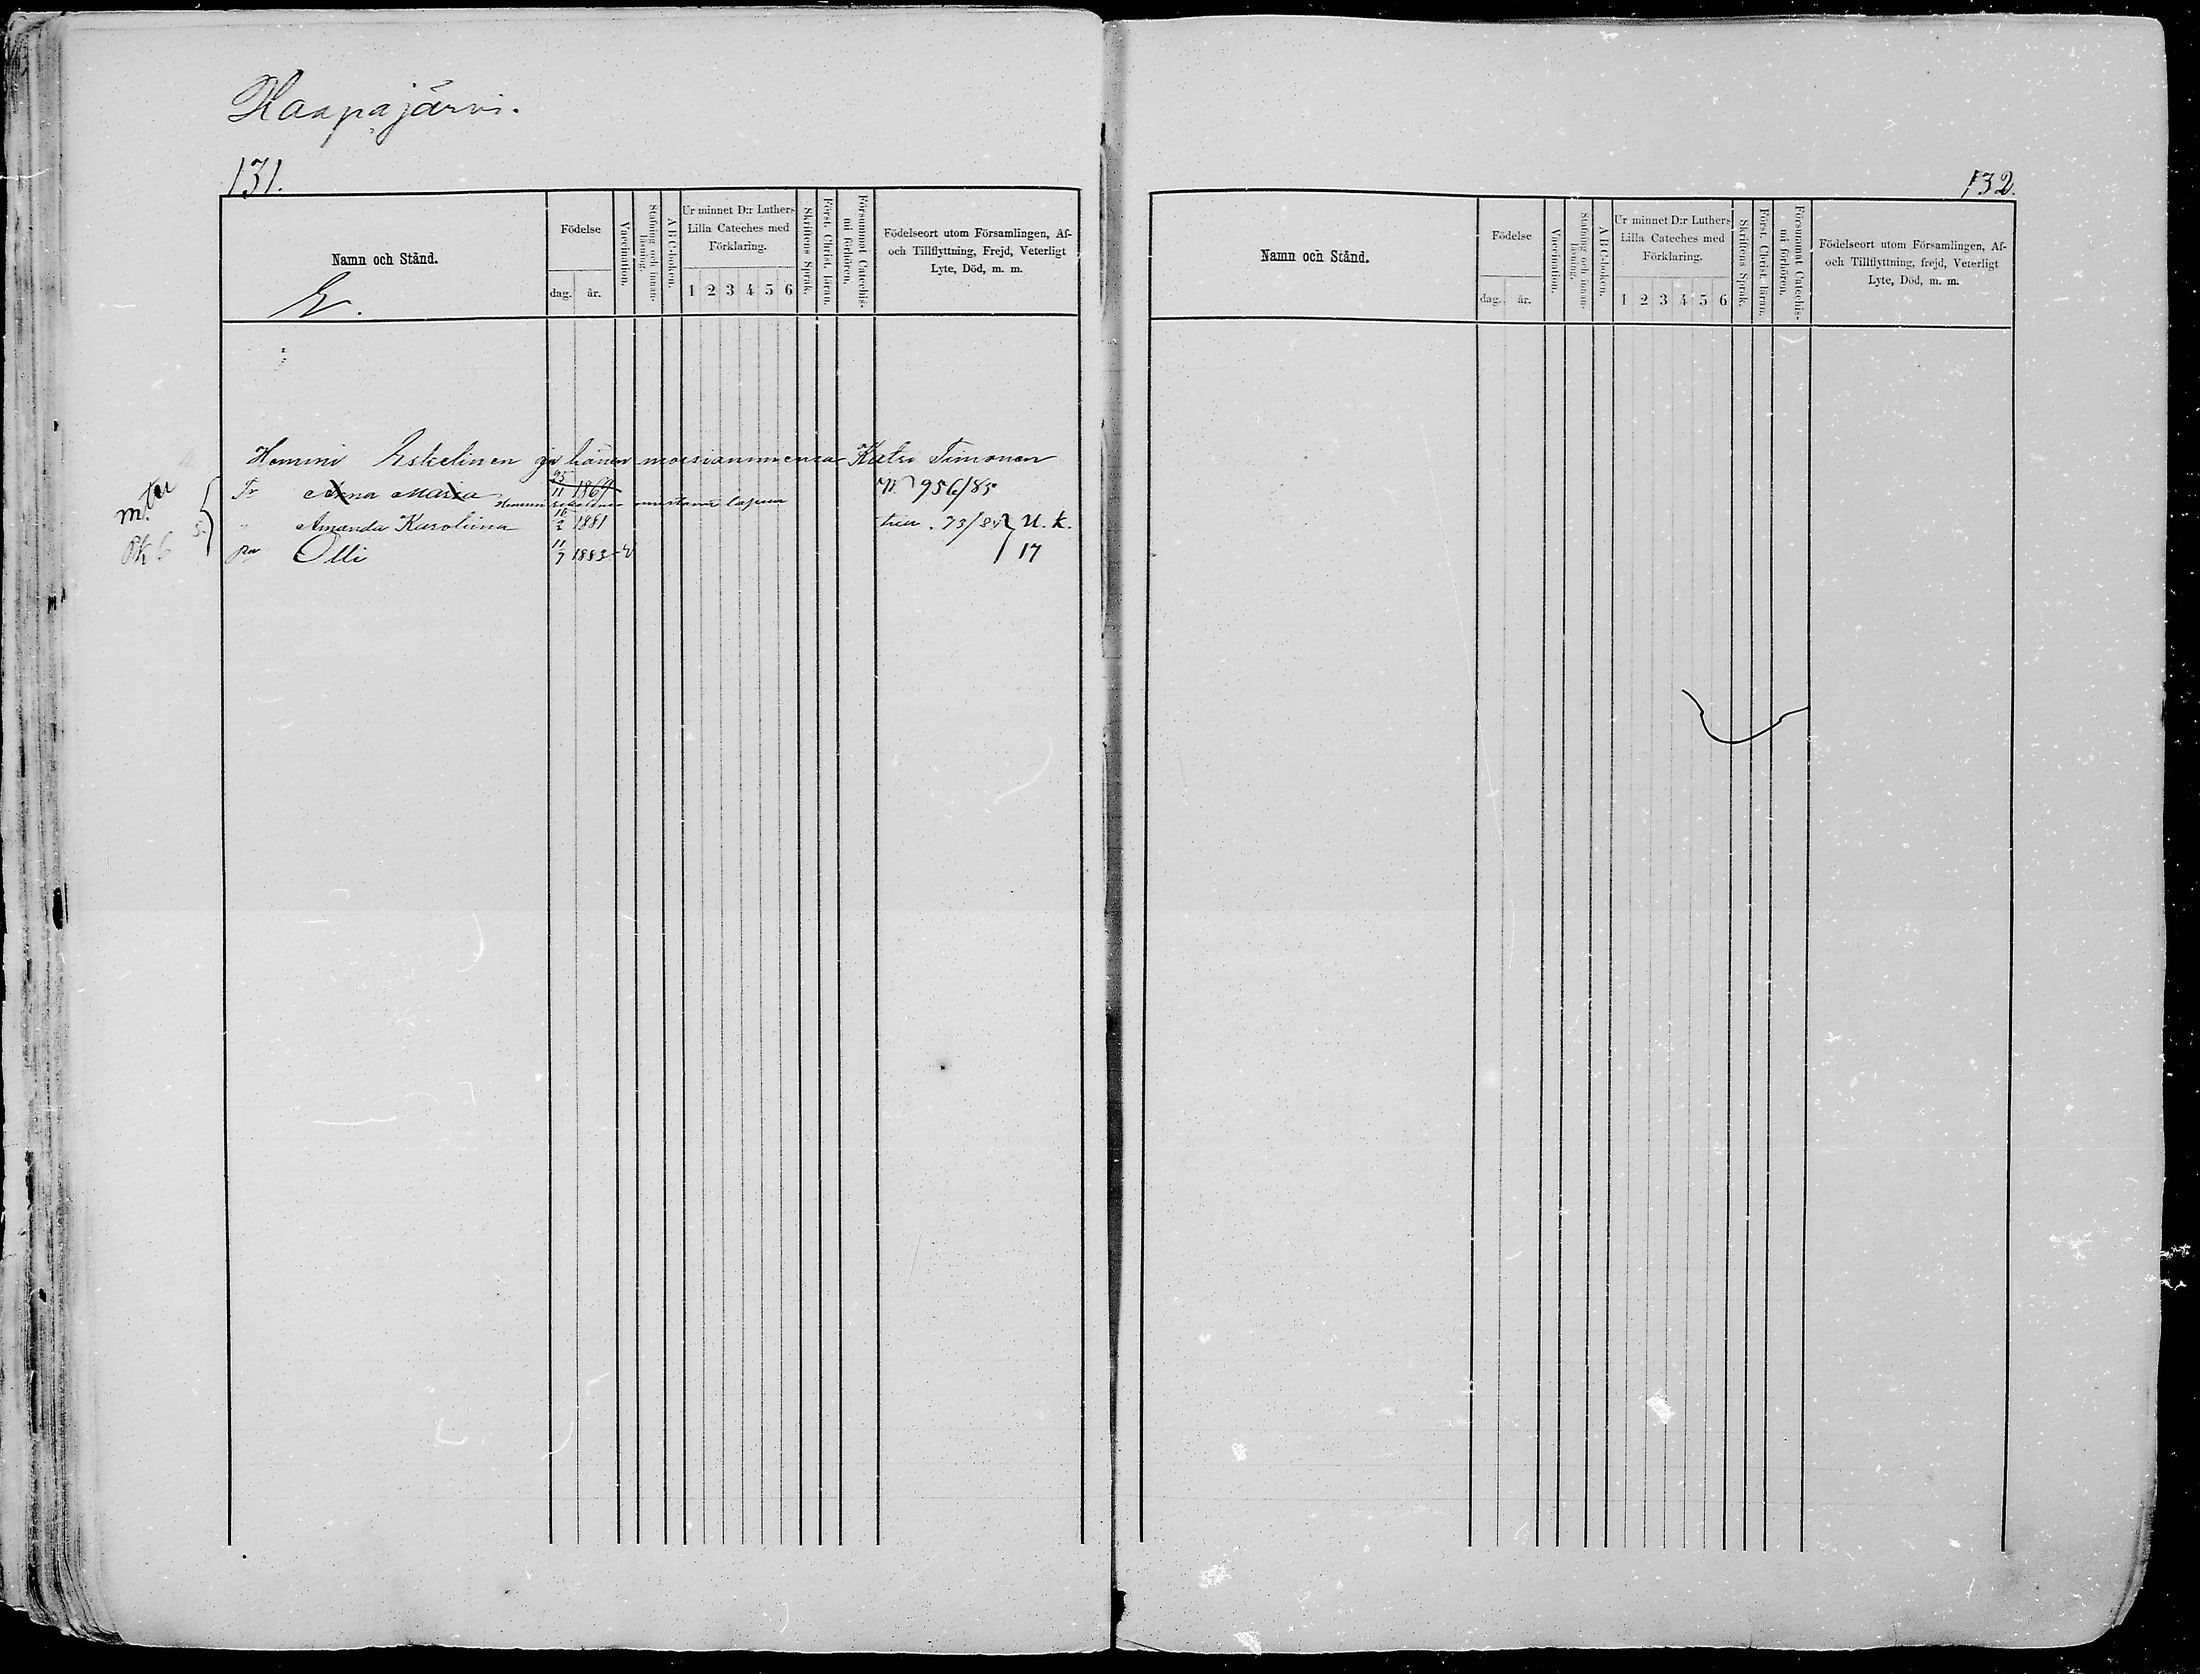 Haapajärvi.
131.
Namn och Stånd.
Födelse
dag. år.
Vaccination.
Stafning och innan-läsning.
A B C-boken.
Ur minnet D:r Luthers Lilla Cateches med Förklaring.
1 2 3 4 5 6
Skriftens Språk.
Först. Christ. läran.
Försummat Catechis-mi förhören.
Födelseort utom Församlingen, Af- och Tillflyttning, Frejd, Veterligt Lyte, Död, m. m.
E.
Hemmi Eskelinen ja hänen Katri Timonen
Tr Anna Maria 25/11 1869 956/85
Amanda Karoliina 16/2 1881 73/84 U. k.
Pr Olli 11/7 1883 v 17
132.
Namn och Stånd.
Födelse
dag. år.
Vaccination.
Stafning och innan-läsning.
A B C-boken.
Ur minnet D:r Luthers Lilla Cateches med Förklaring.
1 2 3 4 5 6
Skriftens Språk.
Först. Christ. läran.
Försummat Catechis-mi förhören.
Födelseort utom Församlingen, Af- och Tillflyttning, frejd, Veterligt Lyte, Död, m. m.